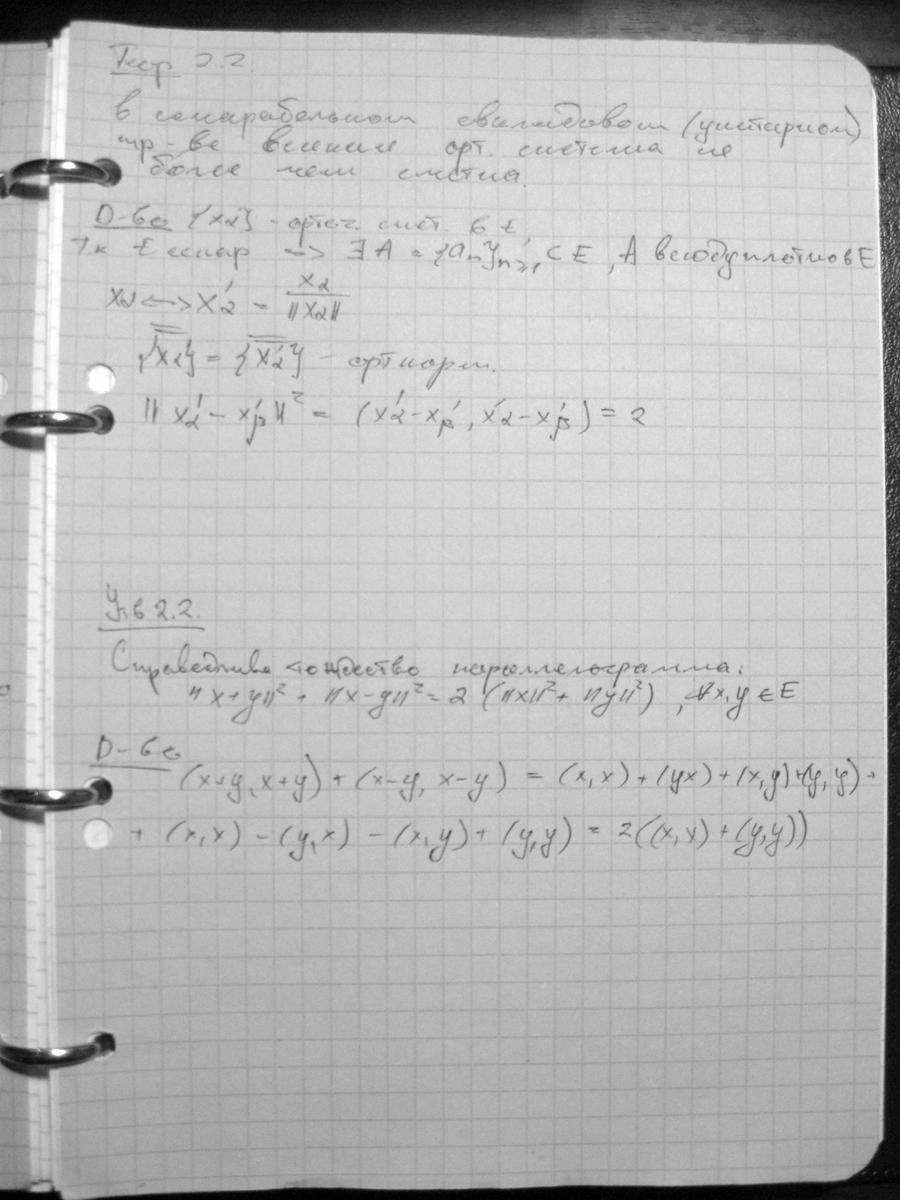 Теор 2.2.
В сепарабельном евклидовом (унитарном)
пр-ве всякая орт. система не
более чем счетна.
D-во {xα} - ортог. сист. в E,
Т.к E сепар => ∃ A = {an}n≥1 ⊂ E, A всюду плотно в E
xα <-> x'α = xα / ||xα||
{x'α} = {x'α} - ортнорм.
|| x'α - x'β ||² = (x'α - x'β, x'α - x'β) = 2
Утв 2.2.
Справедливо тождество параллелограмма:
||x+y||² + ||x-y||² = 2 (||x||² + ||y||²), ∀x,y ∈ E
D-во
(x+y, x+y) + (x-y, x-y) = (x,x) + (yx) + (x,y) + (y,y) +
+ (x,x) - (y,x) - (x,y) + (y,y) = 2((x,x) + (y,y))